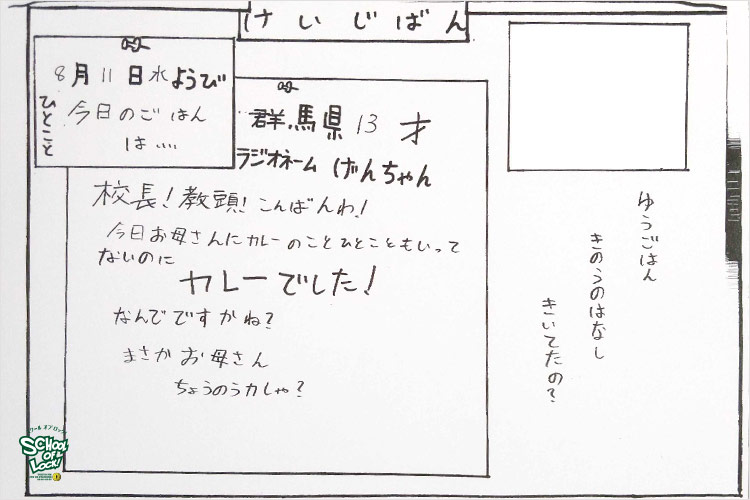 けいじばん
8月11日水ようび
ひとこと
今日のごはん
は....
群馬県13才
ラジオネーム げんちゃん
校長!教頭!こんばんわ!
今日お母さんにカレーのことひとこともいって
ないのに
カレーでした!
なんでですかね?
まさかお母さん
ちょうのう力しゃ?
ゆうごはん
きのうのはなし
きいてたの?
スクール オブ ロック!
SCHOOL
OF
LOCK!